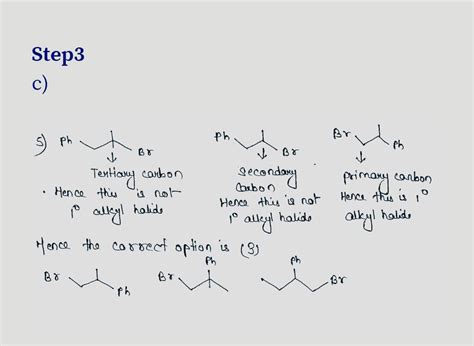 Step3
c)
5) Ph Br Ph Br Br Ph
Tertiary carbon secondary carbon primary carbon
• Hence this is not 1° alkyl halide Hence this is not 1° alkyl halide Hence this is 1° alkyl halide
Hence the correct option is (3)
Br Ph Br Ph Ph Br